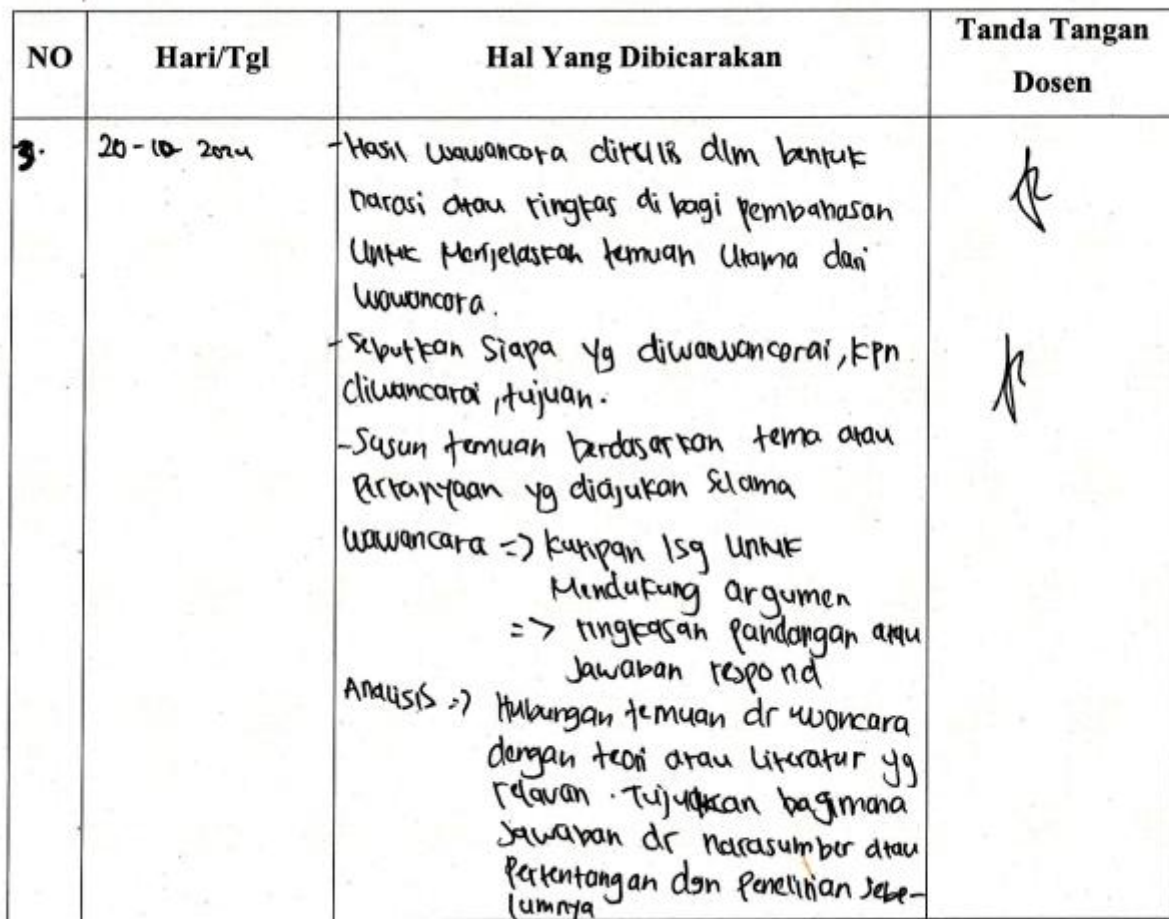 NO Hari/Tgl Hal Yang Dibicarakan Tanda Tangan
Dosen
3. 20-10-2024 - Hasil wawancara ditulis dlm bentuk
narasi atau ringkas di bagi pembahasan
Untuk Menjelaskan temuan Utama dari
wawancara.
- Sebutkan Siapa yg diwawancarai, kpn
diwancarai, tujuan.
- Susun temuan berdasarkan tema atau
Pertanyaan yg diajukan Selama
wawancara => kutipan lsg untuk
Mendukung argumen
=> ringkasan pandangan atau
Jawaban respond
Analisis => Hubungan temuan dr wancara
dengan teori atau Literatur yg
relavan. Tujukkan bagimana
Jawaban dr narasumber atau
Pertentangan dgn Penelitian sebe-
lumnya